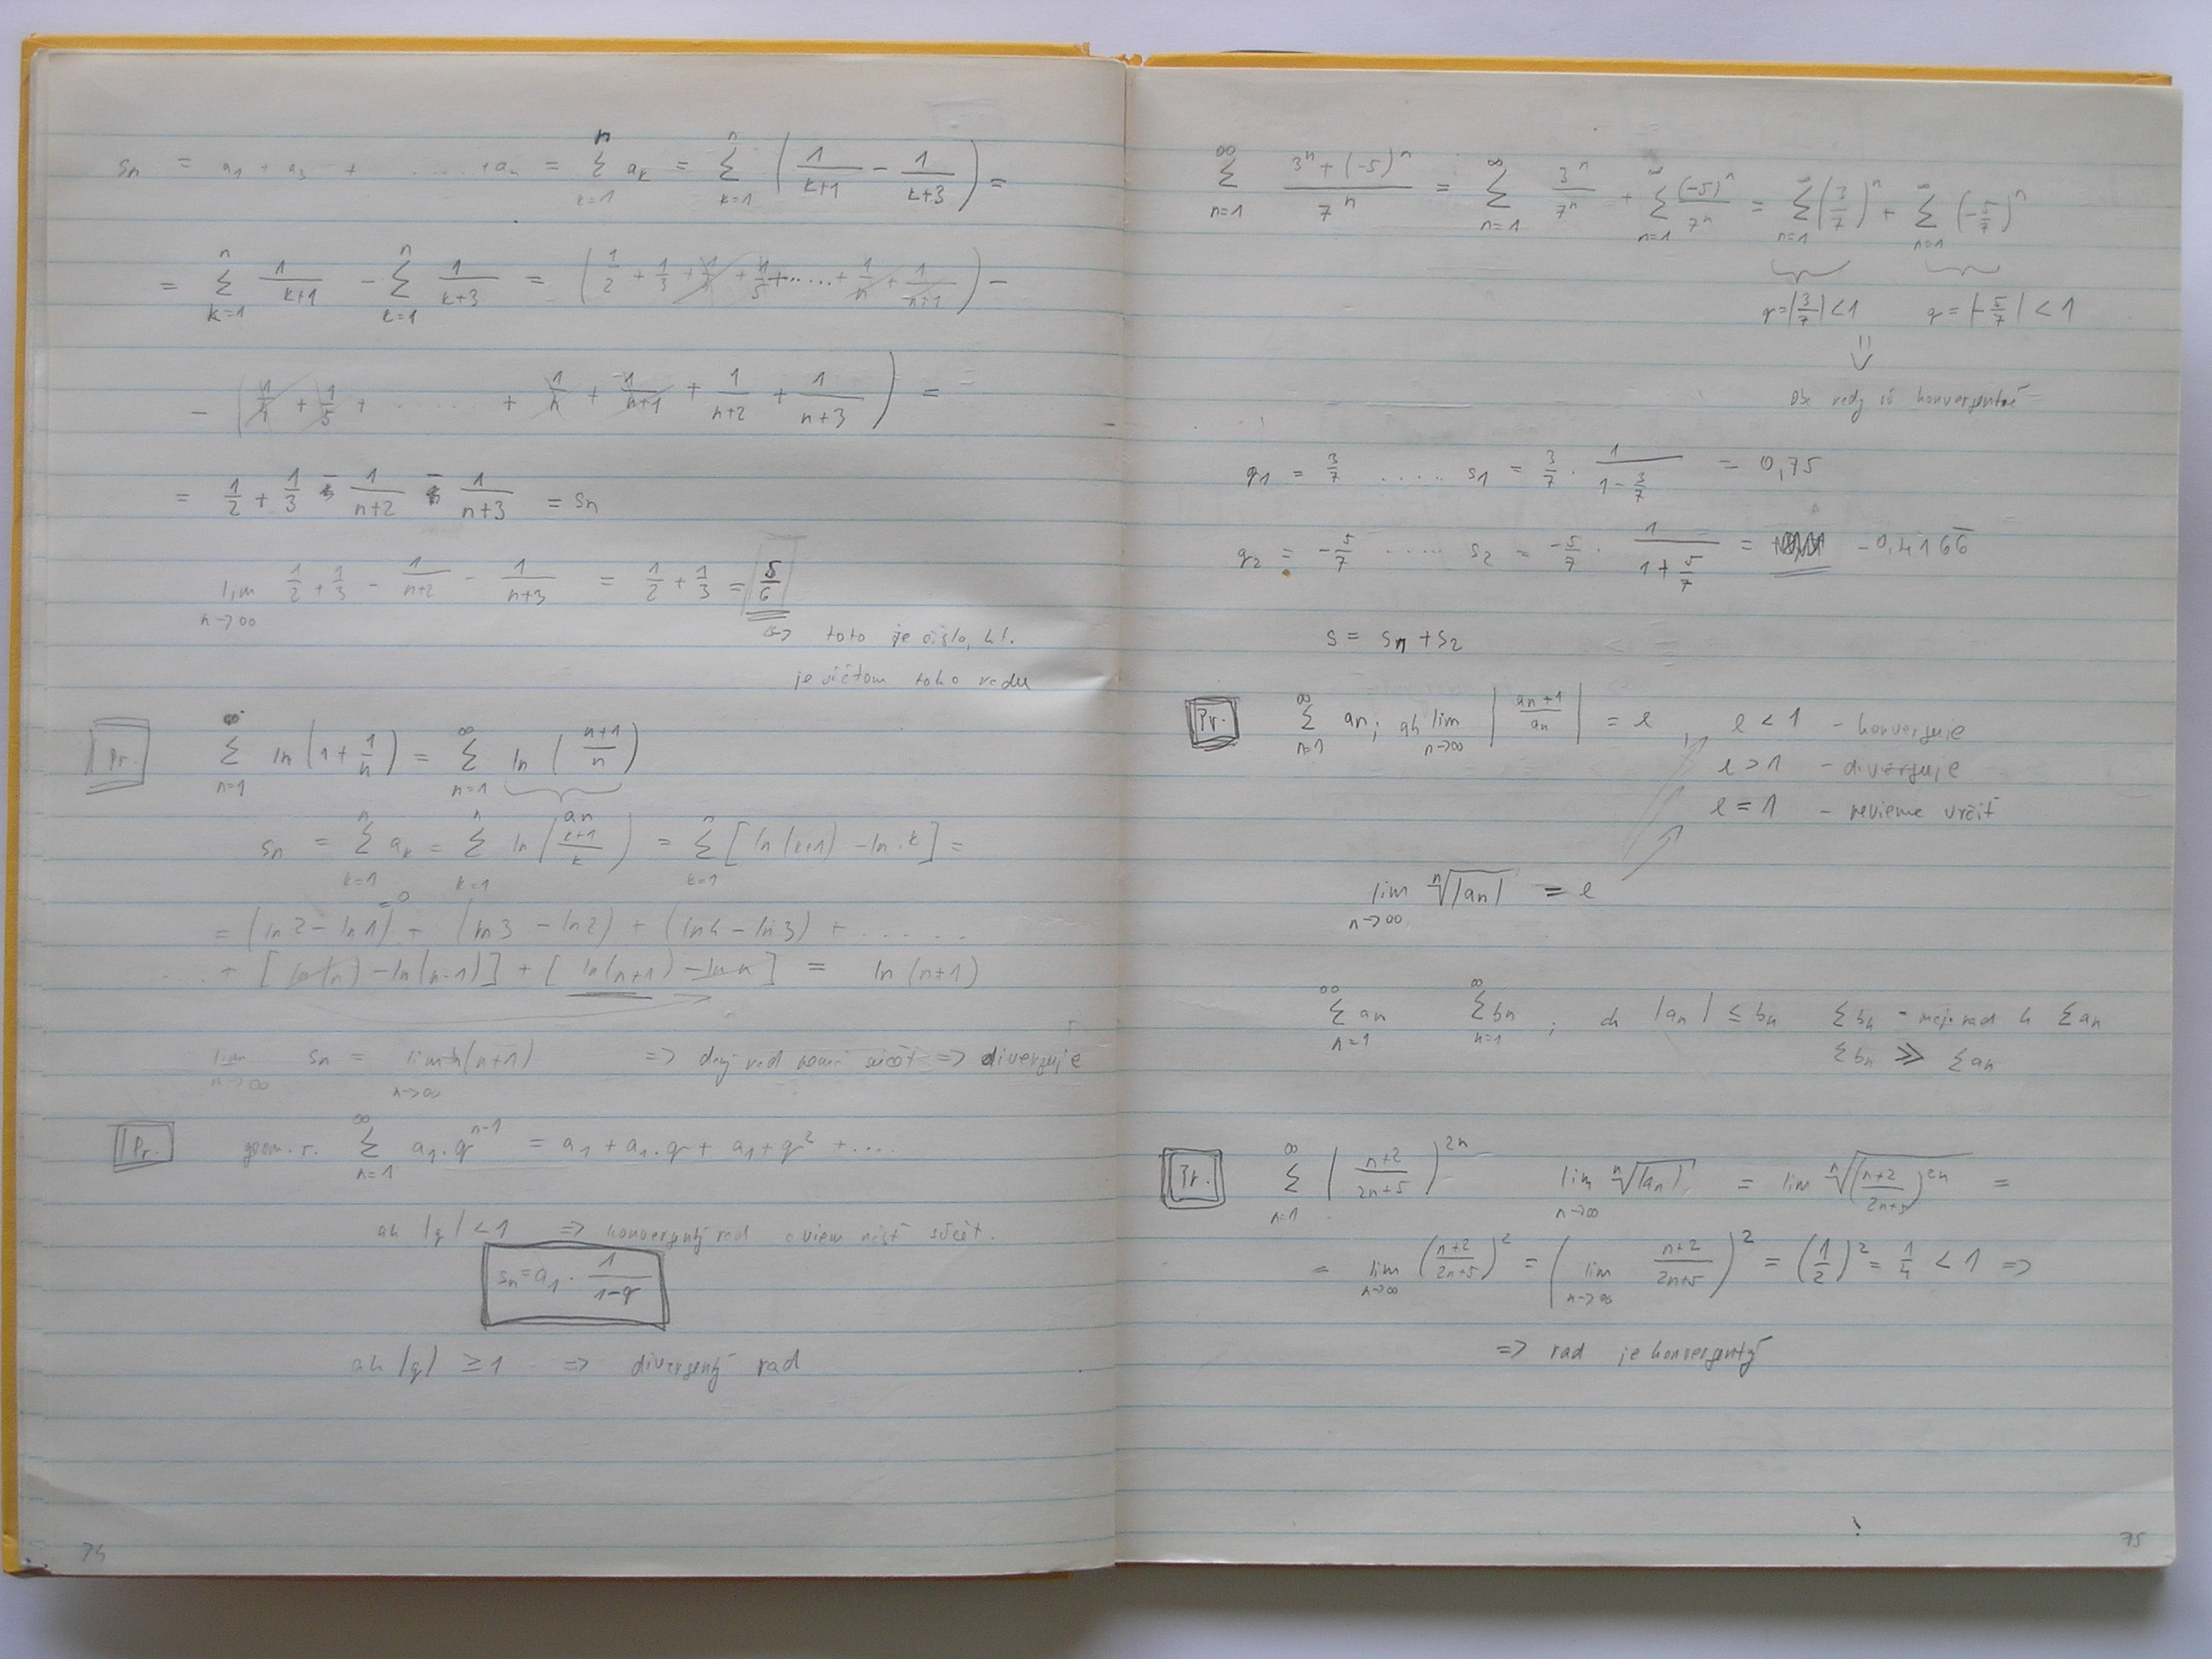 sn = a1 + a3 + ..... + an = n∑k=1 ak = n∑k=1 (1/(k+1) − 1/(k+3)) =
= n∑k=1 1/(k+1) − n∑k=1 1/(k+3) = (1/2 + 1/3 + 1/4 + 1/5 + ..... + 1/n + 1/(n+1)) −
− (1/4 + 1/5 + ...... + 1/n + 1/(n+1) + 1/(n+2) + 1/(n+3)) =
= 1/2 + 1/3 − 1/(n+2) − 1/(n+3) = sn
lim n→∞ 1/2 + 1/3 − 1/(n+2) − 1/(n+3) = 1/2 + 1/3 = 5/6
↪ toto je číslo, kt.
je súčtom toho radu
Pr. ∞∑n=1 ln(1 + 1/n) = ∞∑n=1 ln((n+1)/n)
an
sn = n∑k=1 ak = n∑k=1 ln((k+1)/k) = n∑k=1 [ln(k+1) − ln k] =
= 0
= (ln2 − ln1) + (ln3 − ln2) + (ln4 − ln3) + ......
.. + [ln(n) − ln(n−1)] + [ln(n+1) − ln n] = ln(n+1)
lim n→∞ sn = lim n→∞ ln(n+1) => daný rad nemá súčet => diverguje
Pr. geom. r. ∞∑n=1 a1.q^(n−1) = a1 + a1.q + a1+q² + ....
ak |q| < 1 => konvergentný rad a viem nájsť súčet.
sn = a1 . 1/(1−q)
ak |q| ≥ 1 => divergentný rad
74
∞∑n=1 (3^n + (−5)^n)/7^n = ∞∑n=1 3^n/7^n + ∞∑n=1 (−5)^n/7^n = ∞∑n=1 (3/7)^n + ∞∑n=1 (−5/7)^n
q = |3/7| < 1 q = |−5/7| < 1
⇓
Obe rady sú konvergentné
q1 = 3/7 ..... s1 = 3/7 . 1/(1 − 3/7) = 0,75
q2 = −5/7 ..... s2 = −5/7 . 1/(1 + 5/7) = −0,4166̅
s = s1 + s2
Pr. ∞∑n=1 an; ak lim n→∞ |an+1/an| = l , l < 1 − konverguje
l > 1 − diverguje
l = 1 − nevieme určiť
lim n→∞ ⁿ√|an| = l
∞∑n=1 an ∞∑n=1 bn ; ak |an| ≤ bn ∑bn − maj. rad k ∑an
∑bn ≫ ∑an
Pr. ∞∑n=1 ((n+2)/(2n+5))^2n lim n→∞ ⁿ√|an| = lim ⁿ√((n+2)/(2n+5))^2n =
= lim n→∞ ((n+2)/(2n+5))² = (lim n→∞ (n+2)/(2n+5))² = (1/2)² = 1/4 < 1 =>
=> rad je konvergentný
75